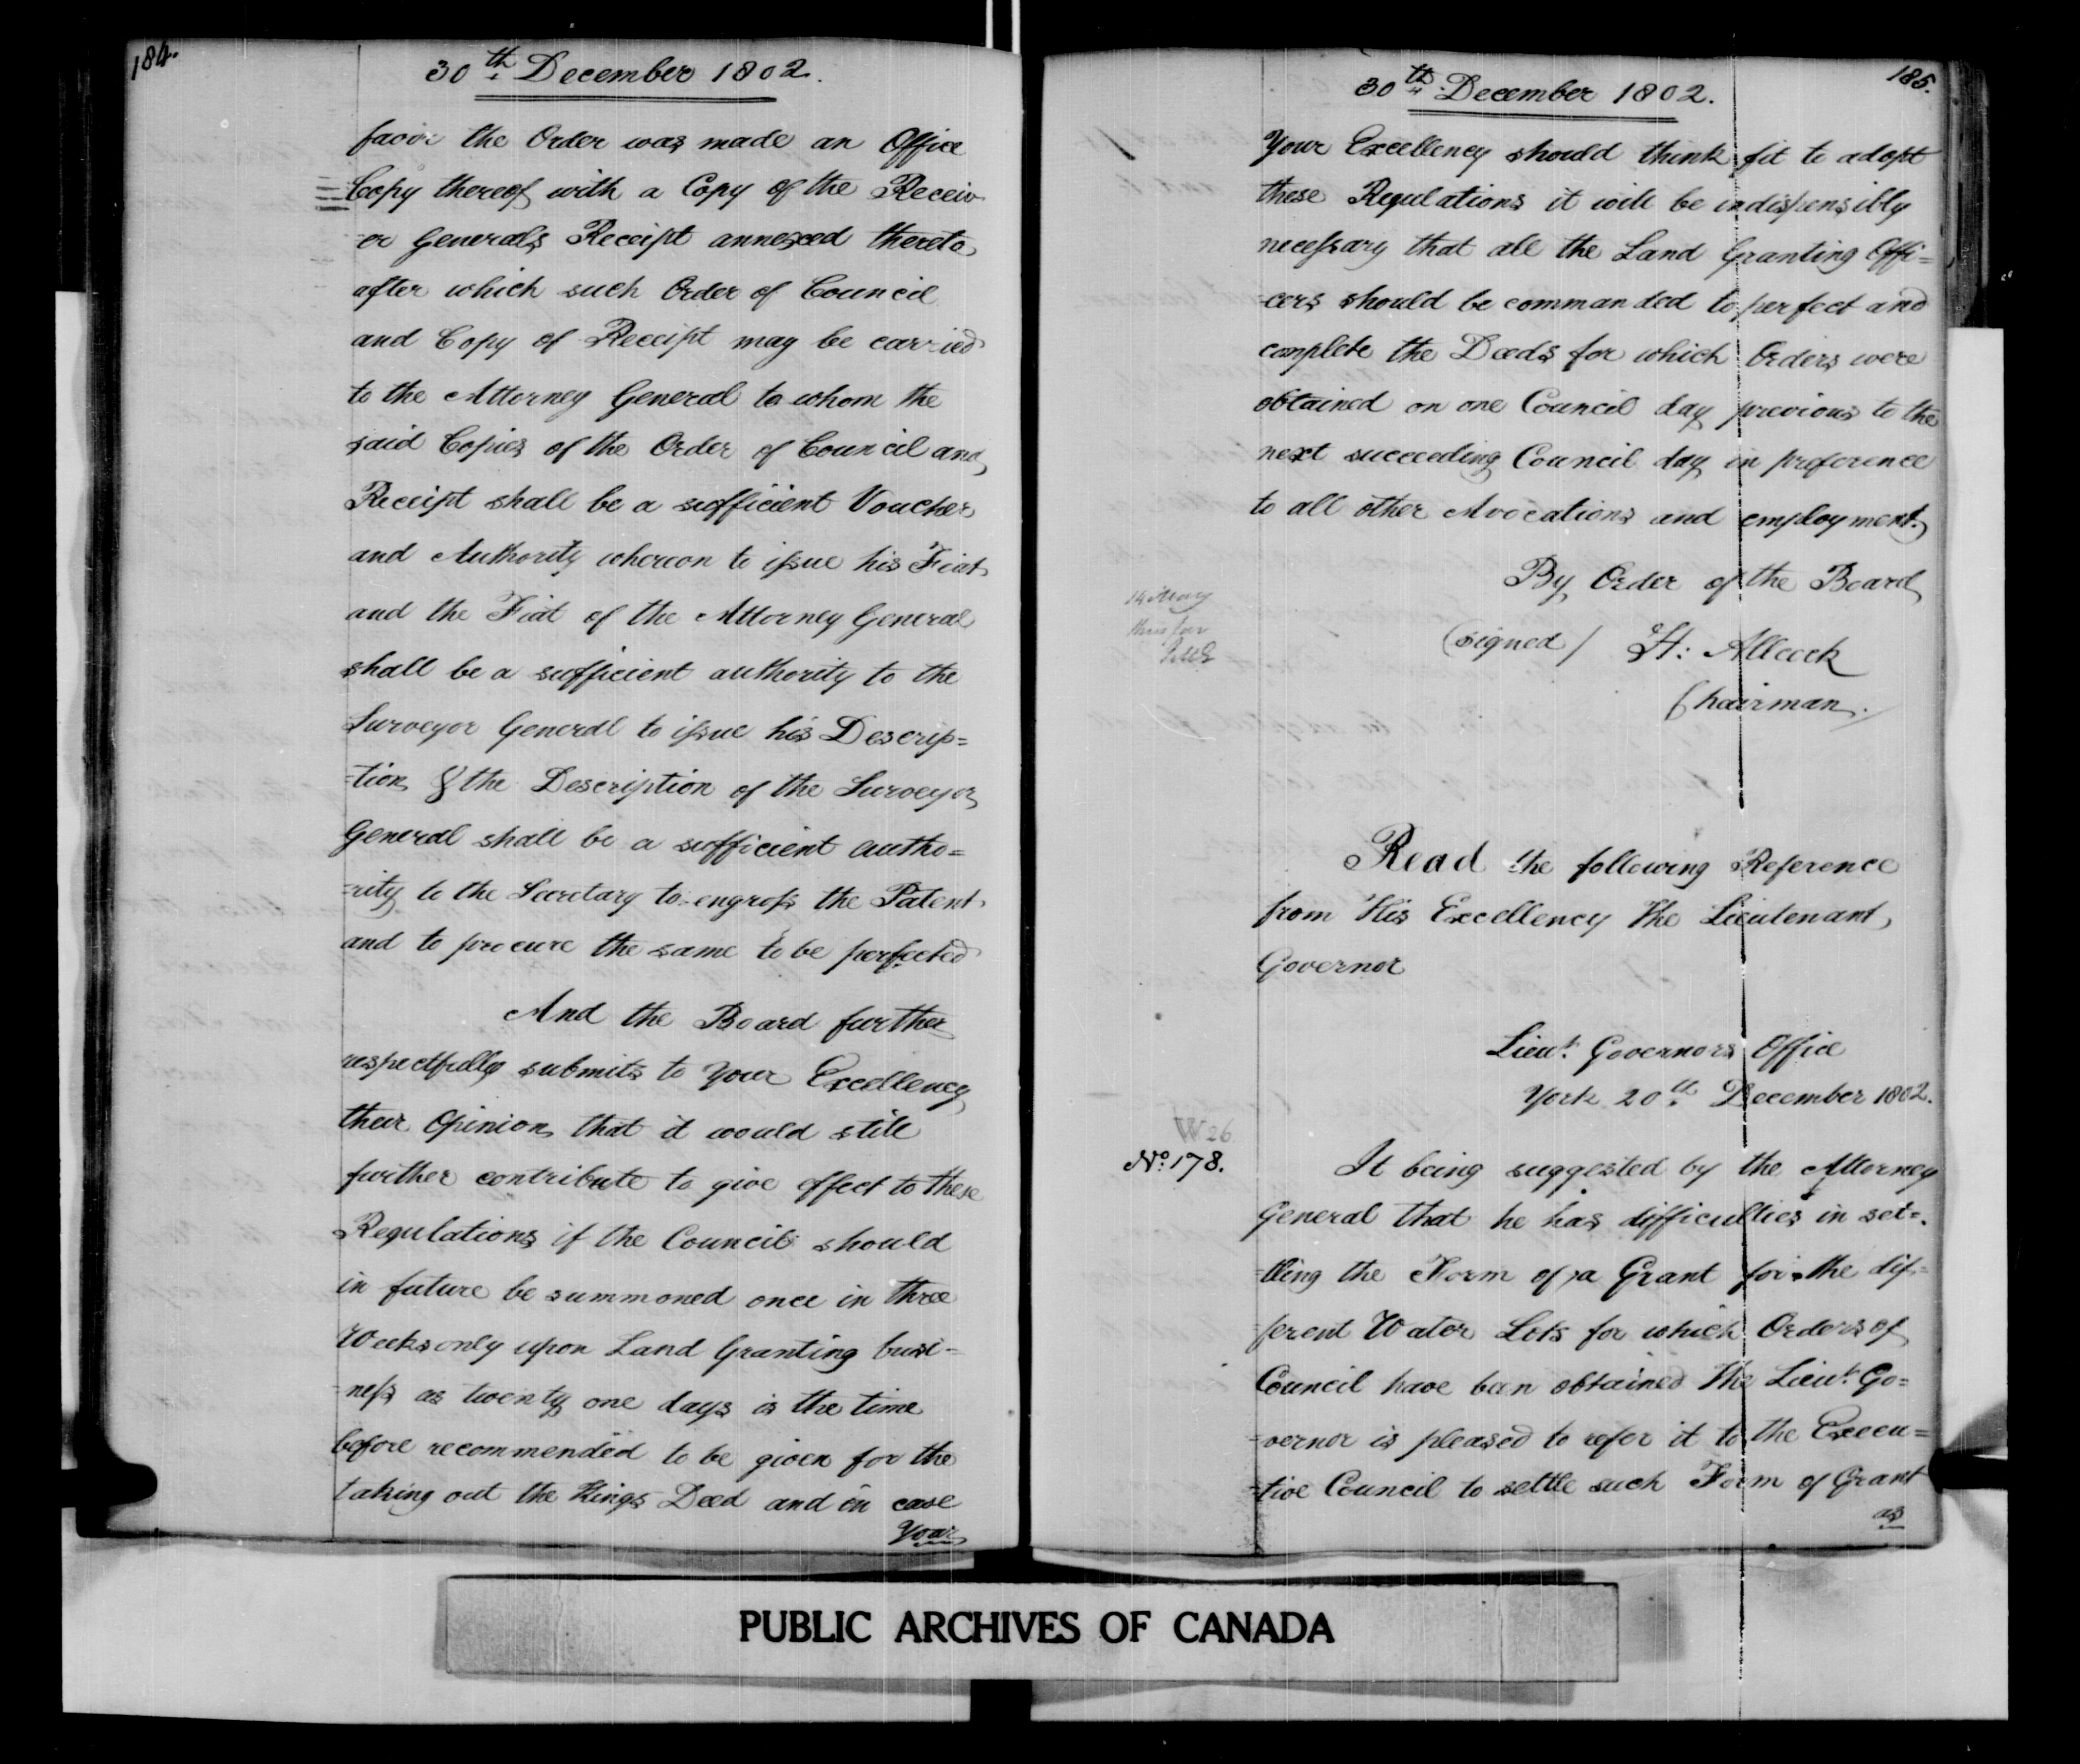 184.
30th December 1802.
favor the Order was made an Office
Copy thereof with a Copy of the Receiv
-er Generals Receipt annexed thereto
after which such Order of Council
and Copy of Receipt may be carried
to the Attorney General to whom the
said Copies of the Order of Council and
Receipt shall be a sufficient Voucher
and Authority whereon to issue his Fiat
and the Fiat of the Attorney General
shall be a sufficient authority to the
Surveyor General to issue his Descrip=
-tion & the Description of the Surveyor
General shall be a sufficient autho=
-rity to the Secretary to engross the Patent
and to procure the same to be perfected
And the Board further
respectfully submits to Your Excellency
their Opinion that it would still
further contribute to give effect to these
Regulations if the Council should
in future be summoned once in three
Weeks only upon Land Granting busi-
-ness as twenty one days is the time
before recommended to be given for the
taking out the Kings Deed and in case
Your
185.
30th December 1802.
Your Excellency should think fit to adopt
these Regulations it will be indispensibly
necessary that all the Land Granting Offi=
-cers should be commanded to perfect and
complete the Deeds for which Orders were
obtained on one Council day previous to the
next succeeding Council day in preference
to all other Avocations and employment.
By Order of the Board
(signed) H: Allcock
Chairman.
Read the following Reference
from His Excellency the Lieutenant
Governor
Lieut. Governors Office
York 20th December 1802.
W 26
No. 178.
It being suggested by the Attorney
General that he has difficulties in set=
-tling the Form of a Grant for the dif-
-ferent Water Lots for which Orders of
Council have been obtained The Lieut. Go=
-vernor is pleased to refer it to the Execu=
-tive Council to settle such Form of Grant
as
PUBLIC ARCHIVES OF CANADA